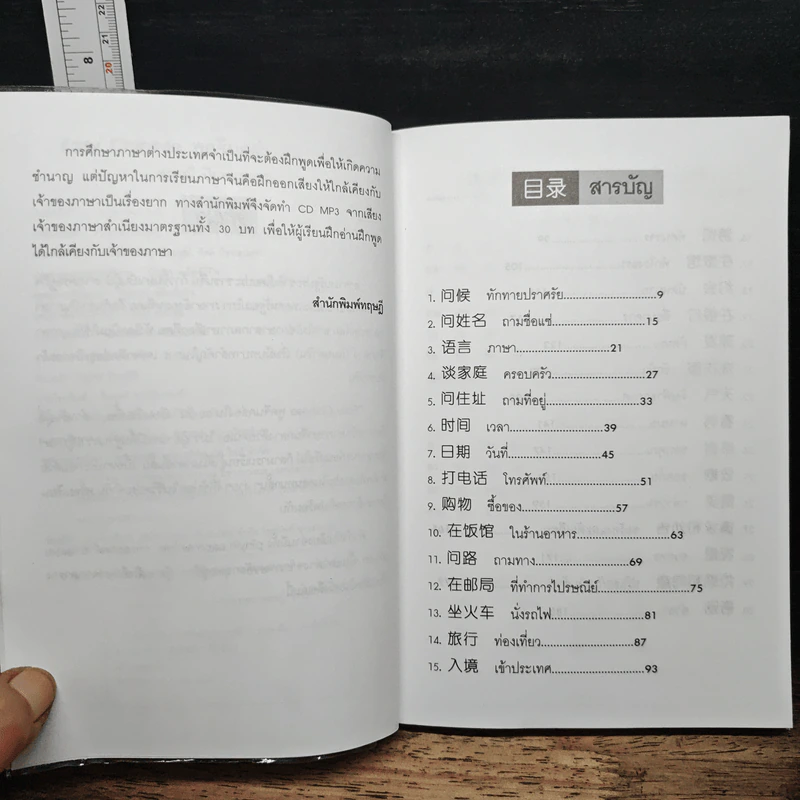 8
22
21
20
การศึกษาภาษาต่างประเทศจำเป็นที่จะต้องฝึกพูดเพื่อให้เกิดความ
ชำนาญ แต่ปัญหาในการเรียนภาษาจีนคือฝึกออกเสียงให้ใกล้เคียงกับ
เจ้าของภาษาเป็นเรื่องยาก ทางสำนักพิมพ์จึงจัดทำ CD MP3 จากเสียง
เจ้าของภาษาสำเนียงมาตรฐานทั้ง 30 บท เพื่อให้ผู้เรียนฝึกอ่านฝึกพูด
ได้ใกล้เคียงกับเจ้าของภาษา
สำนักพิมพ์ทฤษฎี
目录 สารบัญ
1. 问候 ทักทายปราศรัย..............................9
2. 问姓名 ถามชื่อแซ่..............................15
3. 语言 ภาษา..............................21
4. 谈家庭 ครอบครัว..............................27
5. 问住址 ถามที่อยู่..............................33
6. 时间 เวลา..............................39
7. 日期 วันที่..............................45
8. 打电话 โทรศัพท์..............................51
9. 购物 ซื้อของ..............................57
10. 在饭馆 ในร้านอาหาร..............................63
11. 问路 ถามทาง..............................69
12. 在邮局 ที่ทำการไปรษณีย์..............................75
13. 坐火车 นั่งรถไฟ..............................81
14. 旅行 ท่องเที่ยว..............................87
15. 入境 เข้าประเทศ..............................93